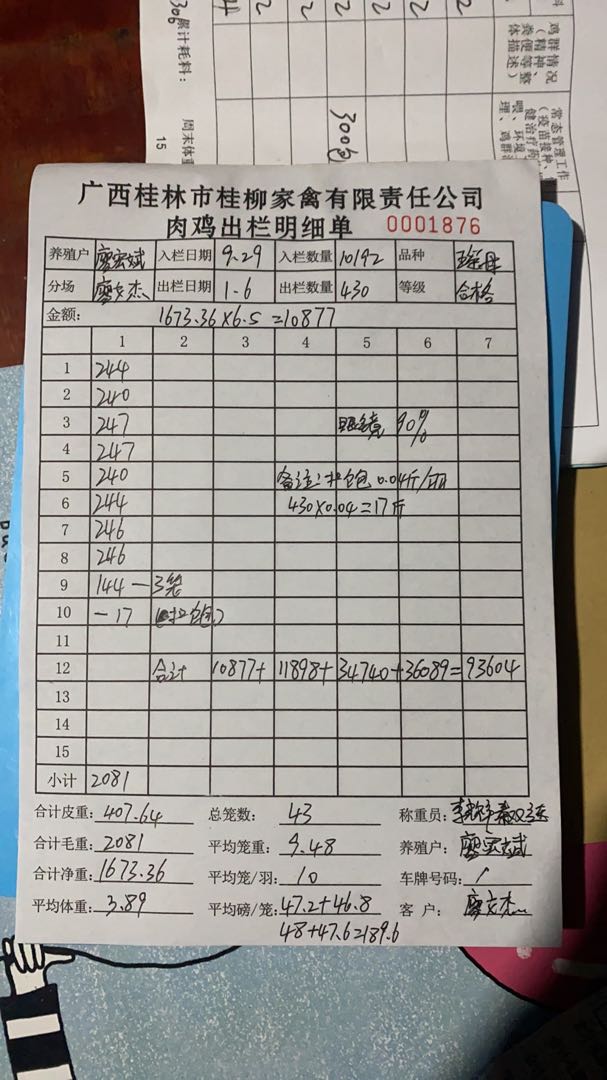 306
累计耗料:
周末体重
15
300包
鸡群情况
(精神、
粪便等整
体描述)
常态管理工作
(疫苗接种、
健治疗药
喂、环境
理、鸡群
广西桂林市桂柳家禽有限责任公司
肉鸡出栏明细单 0001876
养殖户 廖宏斌 入栏日期 9.29 入栏数量 10192 品种
分场 廖文杰 出栏日期 1-6 出栏数量 430 等级 合格
金额: 1673.36×6.5=10877
1 2 3 4 5 6 7
1 244
2 240
3 247 眼镜 90%
4 247
5 240 备注:扣包 0.04斤/羽
6 244 430×0.04=17斤
7 246
8 246
9 144 — 3笼
10 -17
11
12 合计 10877+ 11898+ 34740+36089=93604
13
14
15
小计 2081
合计皮重: 407.64 总笼数: 43 称重员:
合计毛重: 2081 平均笼重: 9.48 养殖户: 廖宏斌
合计净重: 1673.36 平均笼/羽: 10 车牌号码: /
平均体重: 3.89 平均磅/笼: 47.2+46.8 客 户: 廖文杰
48+47.6=189.6